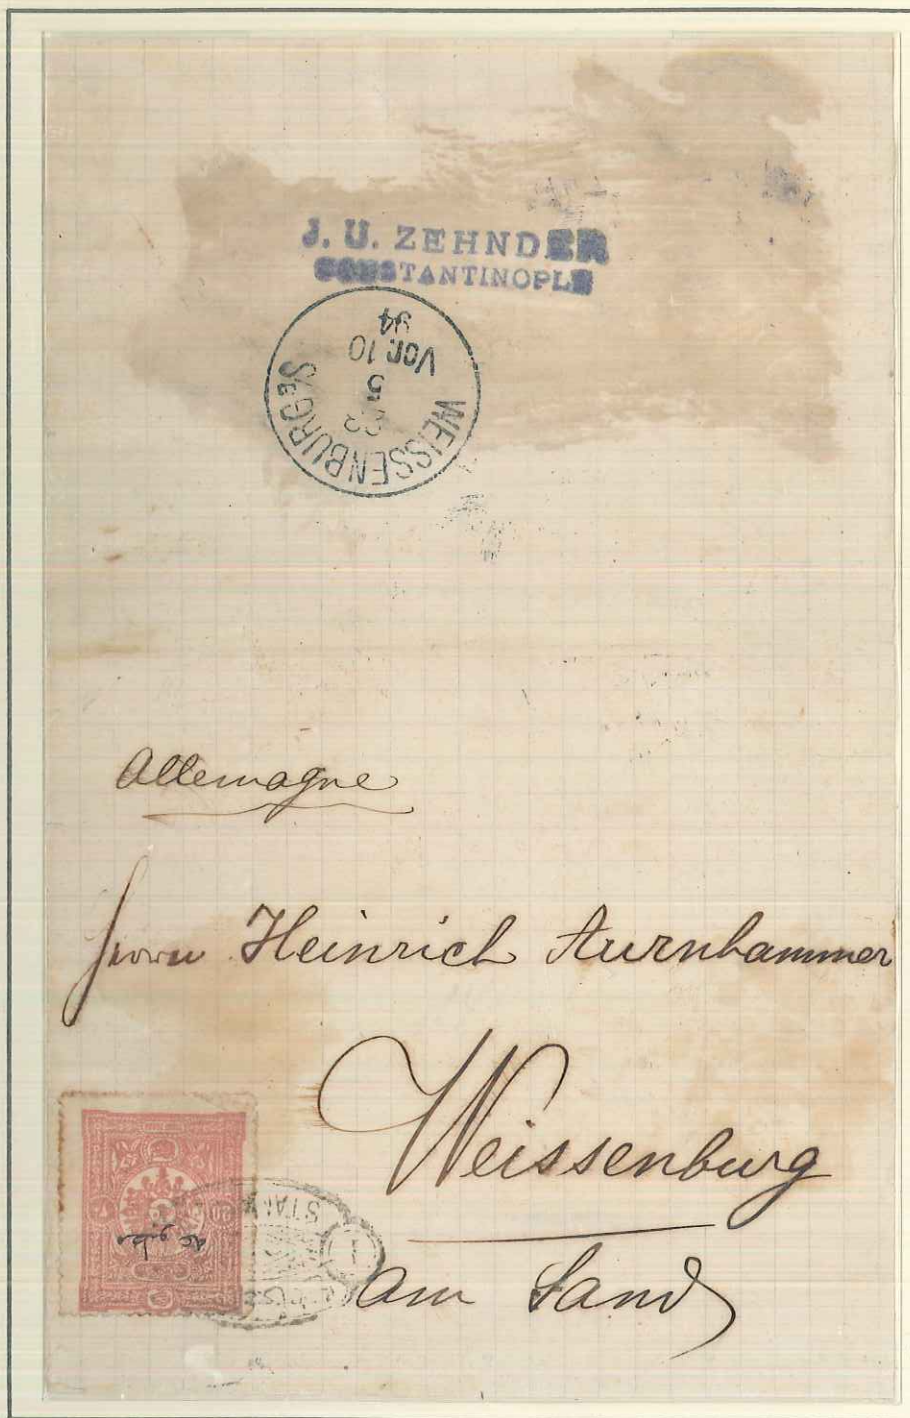 J. U. ZEHNDER
CONSTANTINOPLE
WEISSENBURG a/S.
22
5
Vor. 10
94
Allemagne
Herrn Heinrich Aurnhammer
Weissenburg
am Sand